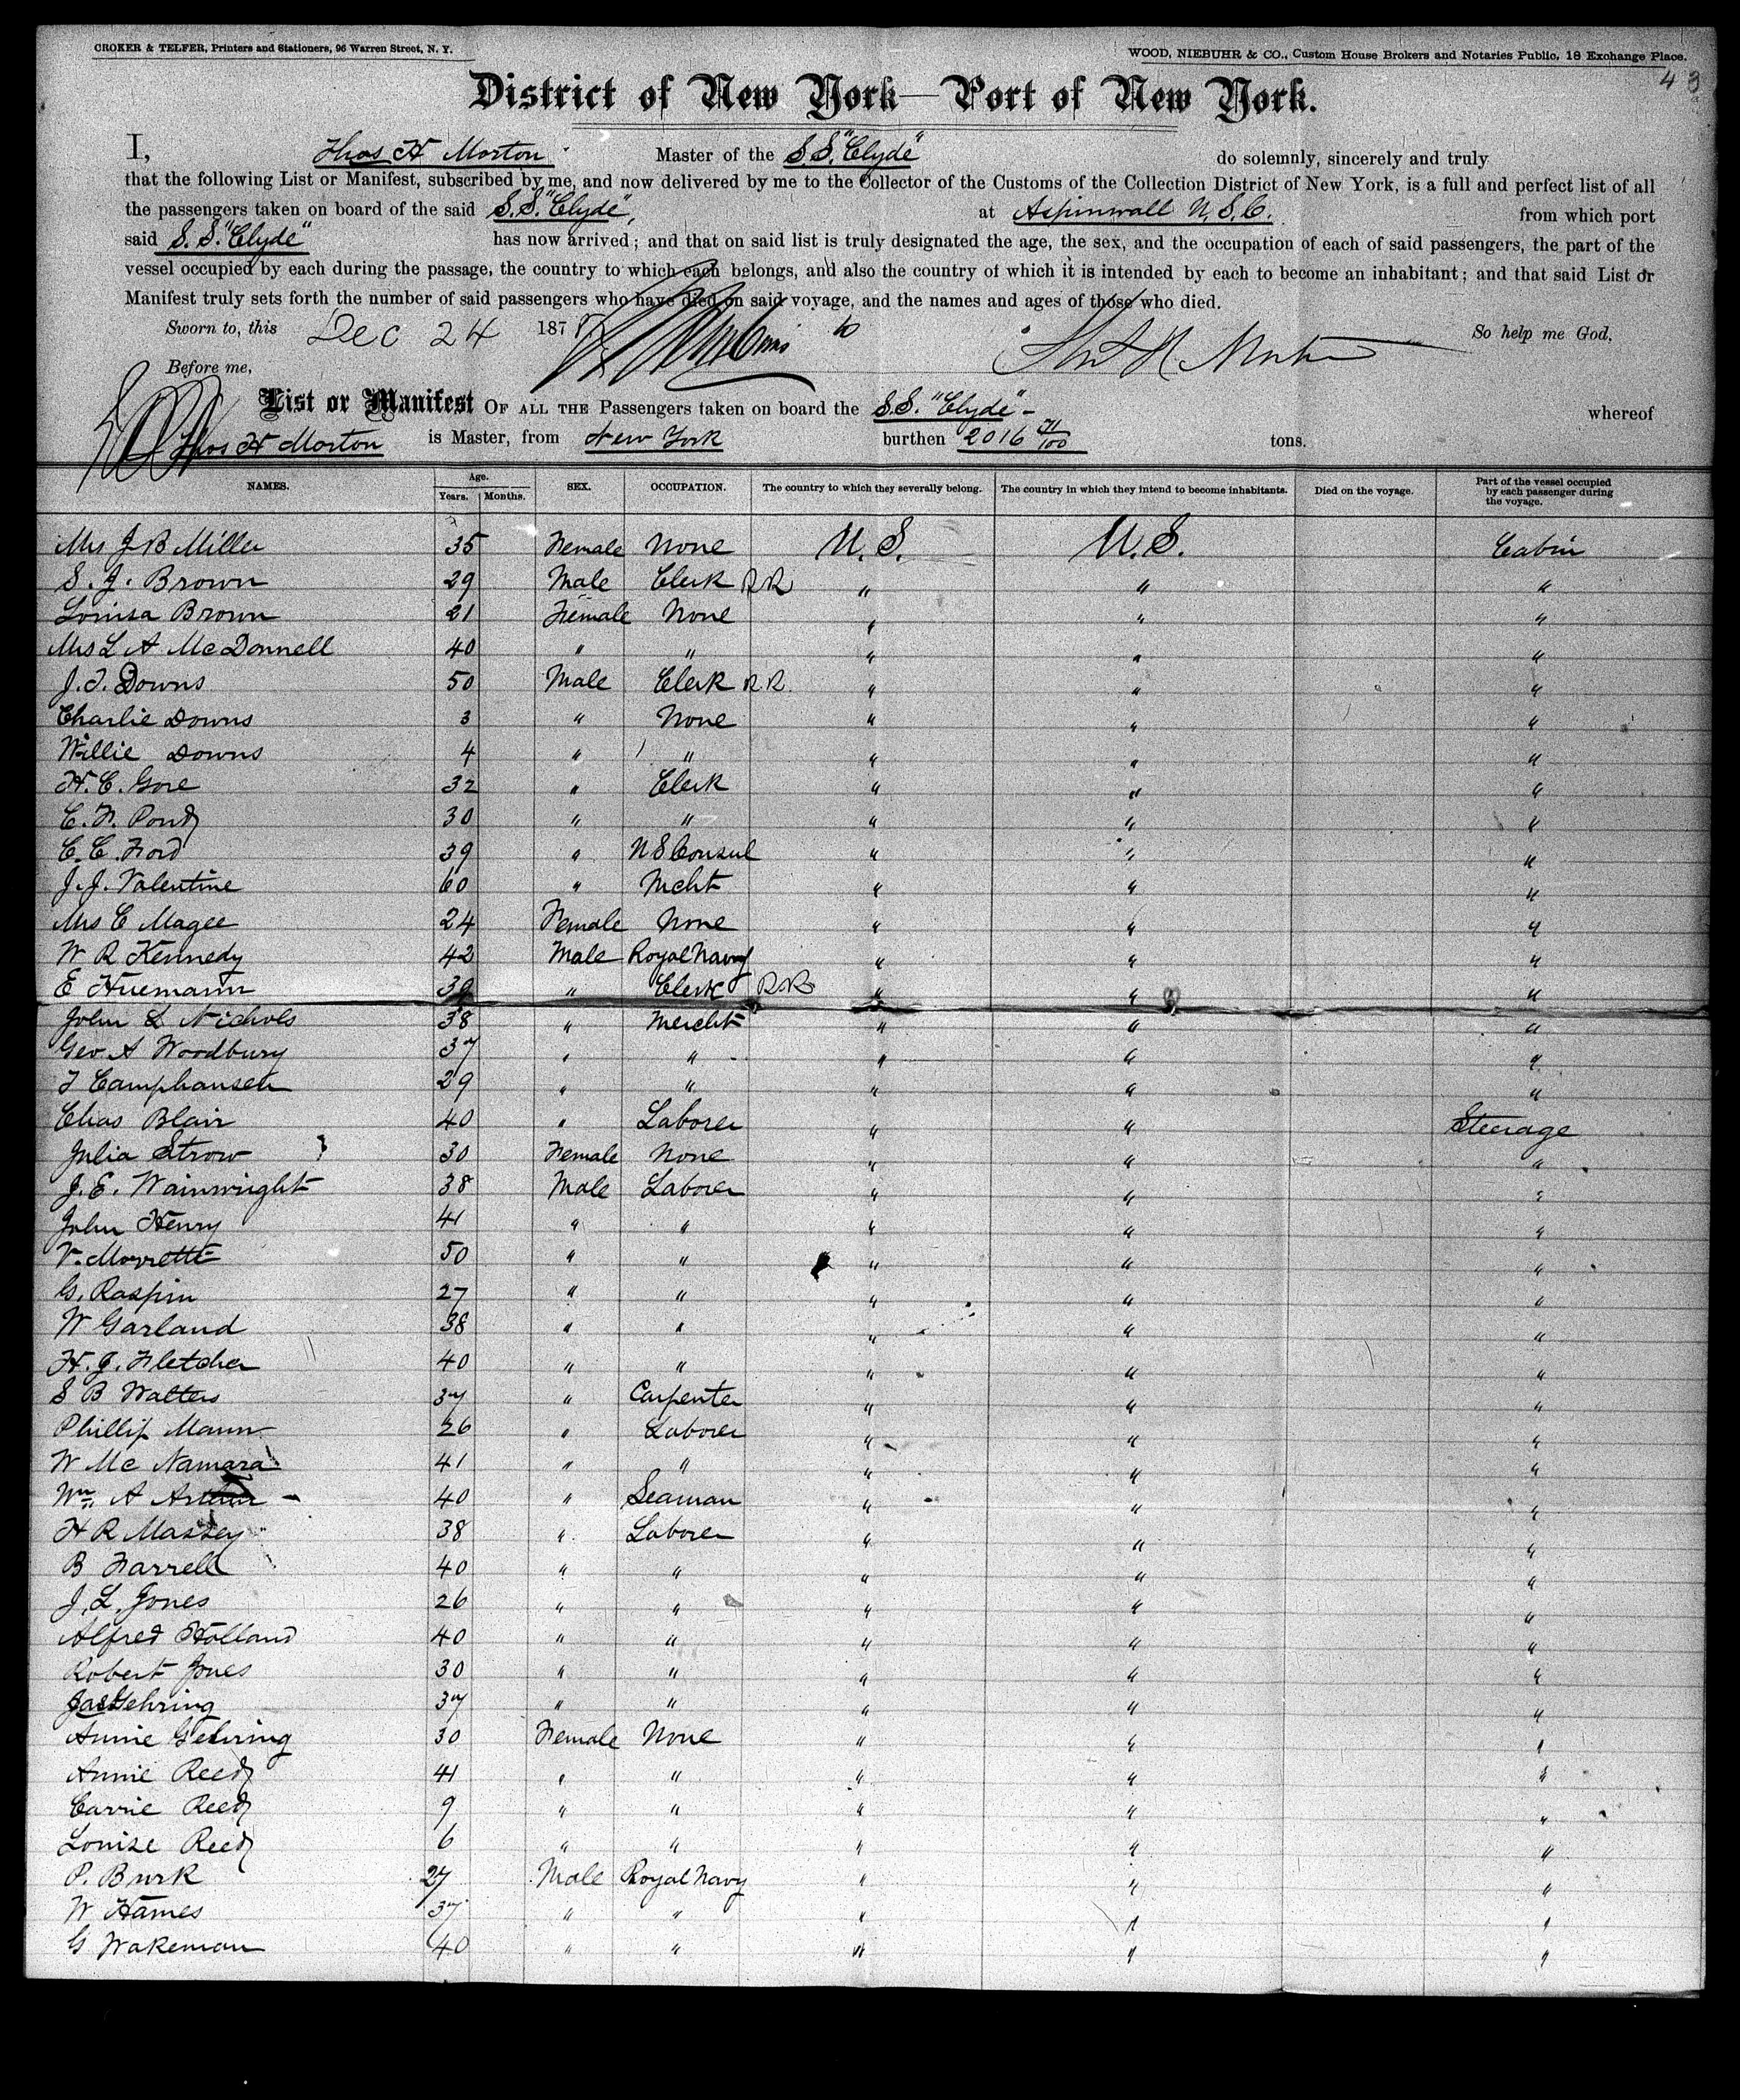 CROKER & TELFER, Printers and Stationers, 96 Warren Street, N. Y.
WOOD, NIEBUHR & CO., Custom House Brokers and Notaries Public, 18 Exchange Place.
43
District of New York—Port of New York.
I, Thos H Morton Master of the S.S. "Clyde" do solemnly, sincerely and truly
that the following List or Manifest, subscribed by me, and now delivered by me to the Collector of the Customs of the Collection District of New York, is a full and perfect list of all
the passengers taken on board of the said S.S. "Clyde", at Aspinwall U.S.C. from which port
said S.S. "Clyde" has now arrived; and that on said list is truly designated the age, the sex, and the occupation of each of said passengers, the part of the
vessel occupied by each during the passage, the country to which each belongs, and also the country of which it is intended by each to become an inhabitant; and that said List or
Manifest truly sets forth the number of said passengers who have died on said voyage, and the names and ages of those who died.
Sworn to, this Dec 24 187 So help me God,
Thos H Morton
Before me,
List or Manifest OF ALL THE Passengers taken on board the S.S. "Clyde" - whereof
Thos H Morton is Master, from New York burthen 2016 71/100 tons.
NAMES. Age. Years. Months. SEX. OCCUPATION. The country to which they severally belong. The country in which they intend to become inhabitants. Died on the voyage. Part of the vessel occupied by each passenger during the voyage.
Mrs J B Miller 35 Female None U.S. U.S. Cabin
S. J. Brown 29 Male Clerk RR " " "
Louisa Brown 21 Female None " " "
Mrs L A McDonnell 40 " " " " "
J. T. Downs 50 Male Clerk R.R. " " "
Charlie Downs 3 " None " " "
Willie Downs 4 " " " " "
H. C. Gore 32 " Clerk " " "
C. F. Pond 30 " " " " "
C. C. Ford 39 " U S Consul " " "
J. J. Valentine 60 " Mcht " " "
Mrs C Magee 24 Female None " " "
W R Kennedy 42 Male Royal Navy " " "
E Huemann 39 " Clerk RR " " "
John L Nichols 38 " Mercht " " "
Geo A Woodbury 37 " " " " "
T Camphausen 29 " " " " "
Chas Blair 40 " Laborer " " Steerage
Julia Strow 30 Female None " " "
J. E. Wainwright 38 Male Laborer " " "
John Henry 41 " " " " "
V. Morrette 50 " " " " "
G. Raspin 27 " " " " "
W Garland 38 " " " " "
H. J. Fletcher 40 " " " " "
S B Walters 37 " Carpenter " " "
Phillip Mann 26 " Laborer " " "
W Mc Namara 41 " " " " "
Wm A Arthur 40 " Seaman " " "
H R Massey 38 " Laborer " " "
B Farrell 40 " " " " "
J. L. Jones 26 " " " " "
Alfred Holland 40 " " " " "
Robert Jones 30 " " " " "
Jas Gehring 37 " " " " "
Annie Gehring 30 Female None " " "
Annie Reed 41 " " " " "
Carrie Reed 9 " " " " "
Louise Reed 6 " " " " "
P. Burk 27 Male Royal Navy " " "
W Hames 37 " " " " "
G Wakeman 40 " " " " "